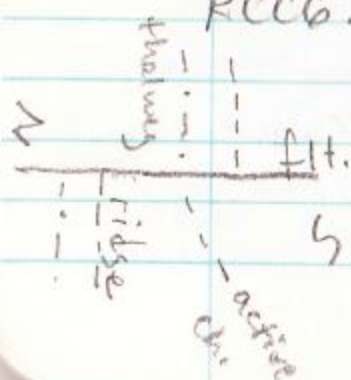 RCC6.
thalweg
N
flt.
ridge
S
active
ch.